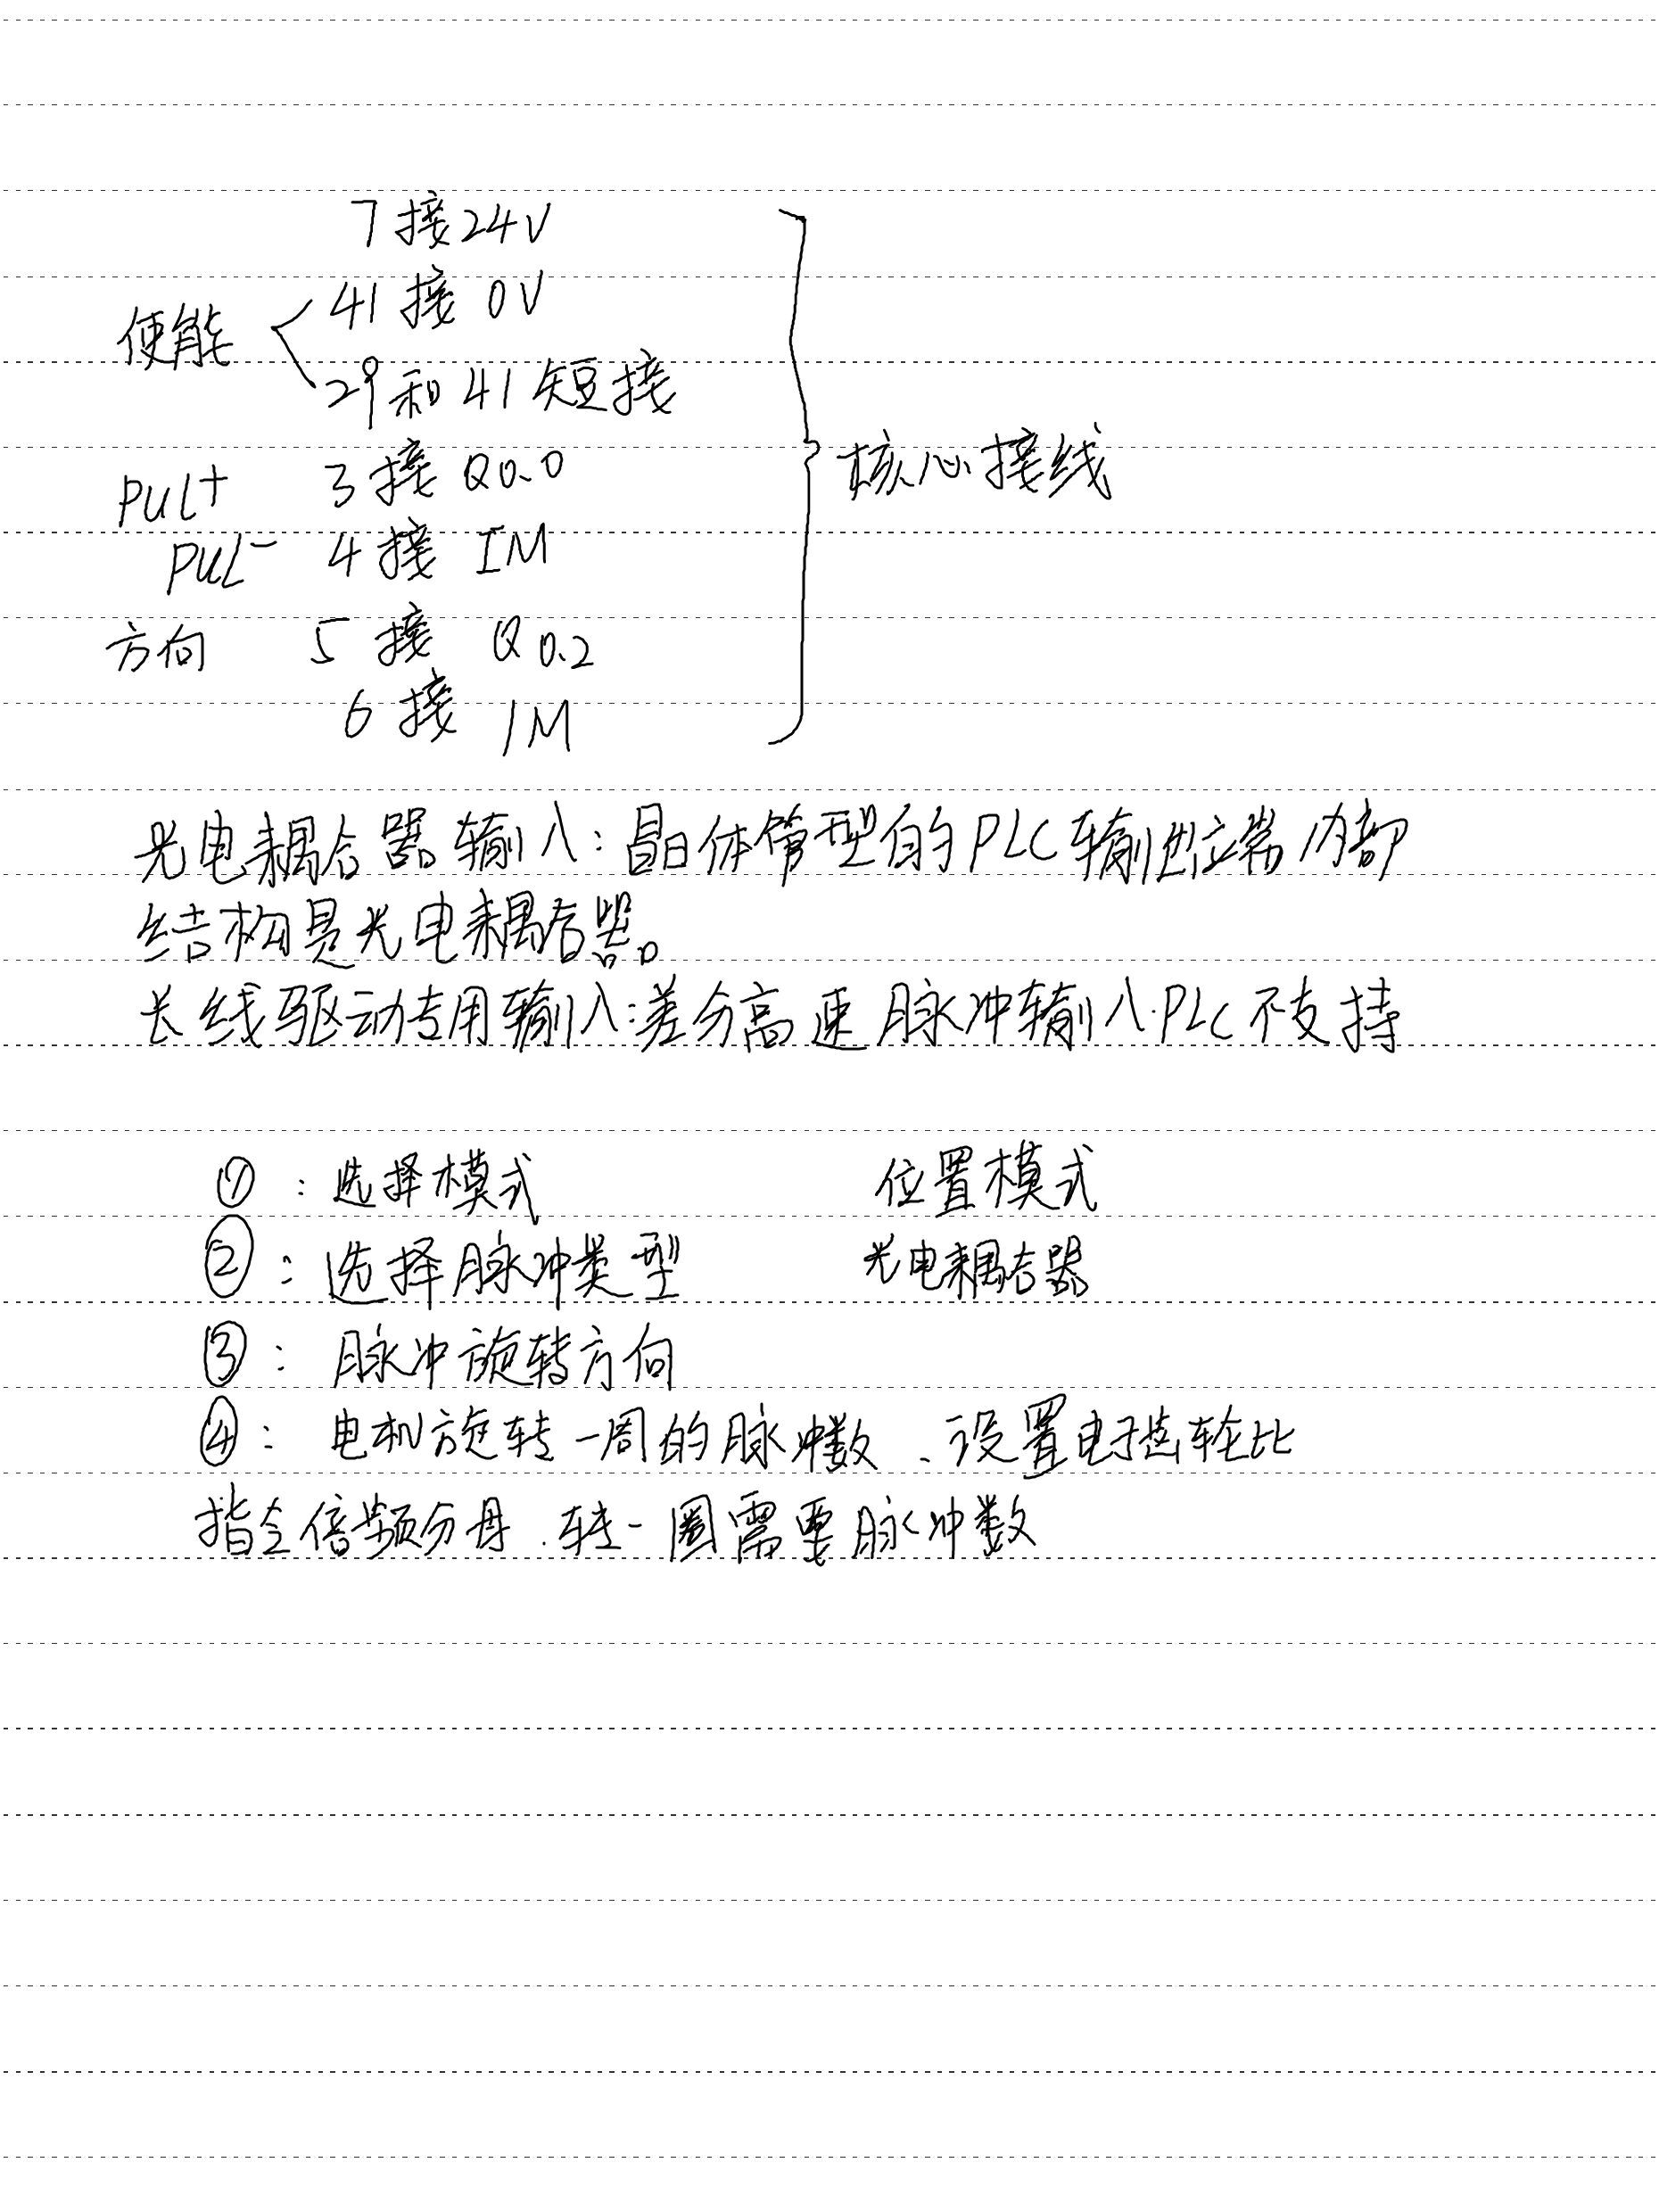 7接24V
使能 41接 0V
29和41短接
PUL+ 3接 Q0.0
核心接线
PUL- 4接 IM
方向 5接 Q0.2
6接 1M
光电耦合器输入:晶体管型的PLC输出端内部
结构是光电耦合器。
长线驱动专用输入:差分高速脉冲输入.PLC不支持
①:选择模式 位置模式
②:选择脉冲类型 光电耦合器
③:脉冲旋转方向
④:电机旋转一周的脉冲数、设置电子齿轮比
指令倍频分母.转一圈需要脉冲数